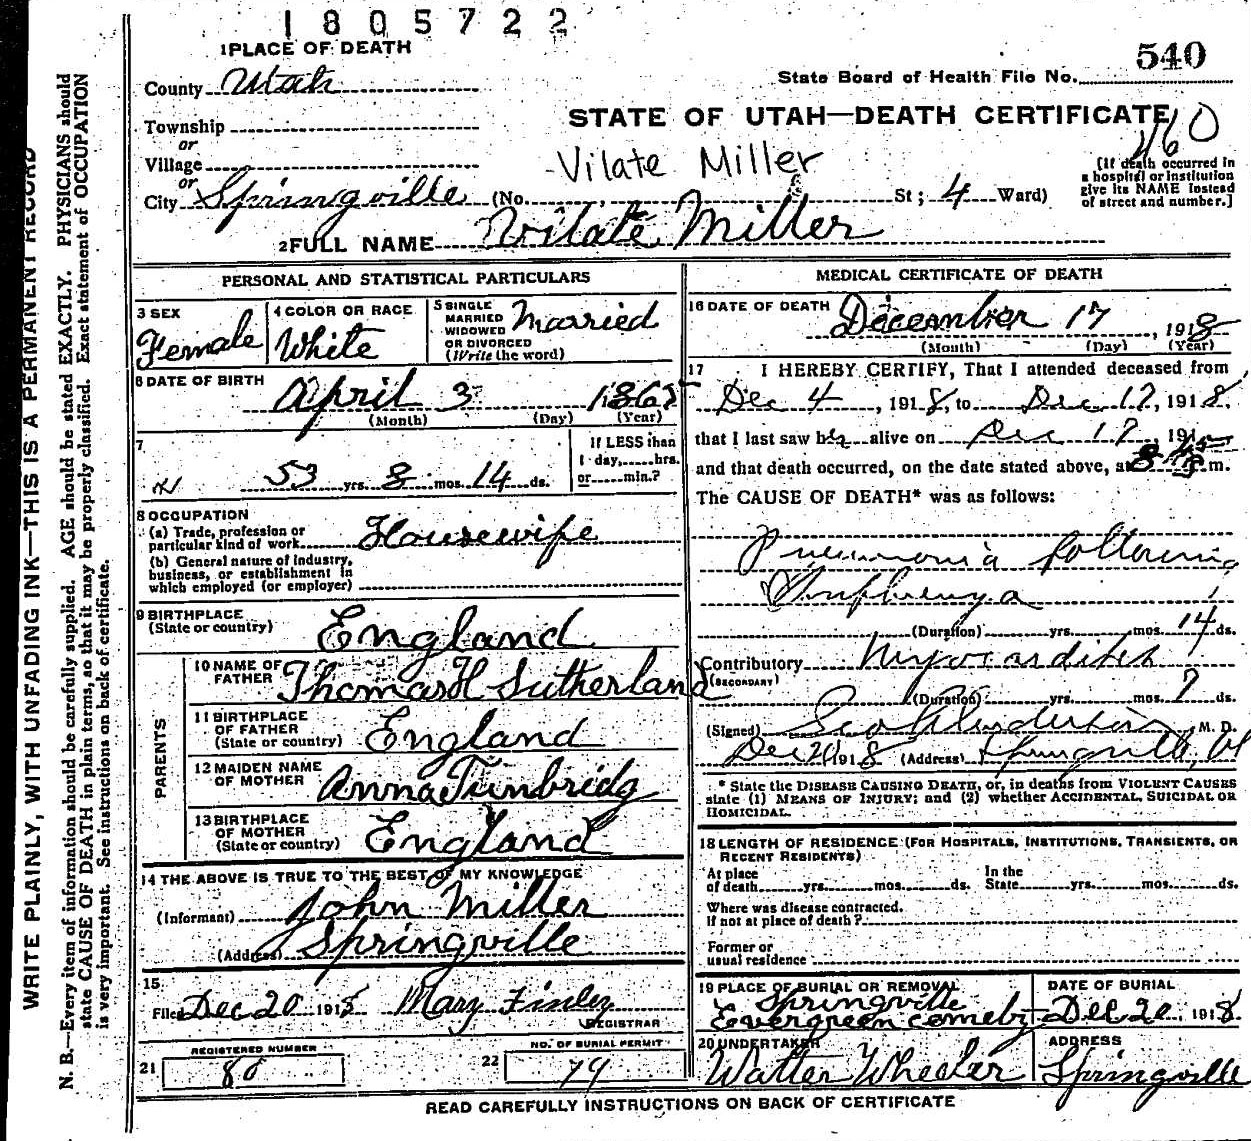 1805722
1 PLACE OF DEATH
540
State Board of Health File No.
County Utah
STATE OF UTAH—DEATH CERTIFICATE
Township
or
Village
Vilate Miller
(If death occurred in
a hospital or institution
give its NAME instead
of street and number.]
or
City Springville (No. St; 4 Ward)
2 FULL NAME Vilate Miller
PERSONAL AND STATISTICAL PARTICULARS
3 SEX
Female
4 COLOR OR RACE
White
5 SINGLE
MARRIED
WIDOWED
OR DIVORCED
(Write the word)
Married
6 DATE OF BIRTH
April 3 1865
(Month) (Day) (Year)
7
53 yrs. 8 mos. 14 ds.
If LESS than
1 day, hrs.
or min.?
8 OCCUPATION
(a) Trade, profession or
particular kind of work Housewife
(b) General nature of industry,
business, or establishment in
which employed (or employer)
9 BIRTHPLACE
(State or country) England
PARENTS
10 NAME OF
FATHER Thomas H Sutherland
11 BIRTHPLACE
OF FATHER
(State or country) England
12 MAIDEN NAME
OF MOTHER Anna Tunbridg
13 BIRTHPLACE
OF MOTHER
(State or country) England
14 THE ABOVE IS TRUE TO THE BEST OF MY KNOWLEDGE
(Informant) John Miller
(Address) Springville
15
Filed Dec 20 1918 Mary Finley
REGISTRAR
21 REGISTERED NUMBER
80
22 NO. OF BURIAL PERMIT
79
MEDICAL CERTIFICATE OF DEATH
16 DATE OF DEATH
December 17, 1918
(Month) (Day) (Year)
17 I HEREBY CERTIFY, That I attended deceased from
Dec 4, 1918, to Dec 17, 1918.
that I last saw her alive on Dec 17, 191
and that death occurred, on the date stated above, at 8 45 P.m.
The CAUSE OF DEATH* was as follows:
Pneumonia following
Influenza
(Duration) yrs. mos. 14 ds.
Contributory Myocarditis
(SECONDARY)
(Duration) yrs. mos. 7 ds.
(Signed) Geo Anderson, M. D.
Dec 20 1918 (Address) Springville, Ut
* State the DISEASE CAUSING DEATH, or, in deaths from VIOLENT CAUSES
state (1) MEANS OF INJURY; and (2) whether ACCIDENTAL, SUICIDAL OR
HOMICIDAL.
18 LENGTH OF RESIDENCE (FOR HOSPITALS, INSTITUTIONS, TRANSIENTS, OR
RECENT RESIDENTS)
At place
of death yrs. mos. ds.
In the
State yrs. mos. ds.
Where was disease contracted.
if not at place of death?
Former or
usual residence
19 PLACE OF BURIAL OR REMOVAL
Springville
Evergreen cemetery
DATE OF BURIAL
Dec 20, 1918
20 UNDERTAKER
Walter Wheeler
ADDRESS
Springville
READ CAREFULLY INSTRUCTIONS ON BACK OF CERTIFICATE
WRITE PLAINLY, WITH UNFADING INK—THIS IS A PERMANENT RECORD
N. B.—Every item of information should be carefully supplied. AGE should be stated EXACTLY. PHYSICIANS should
state CAUSE OF DEATH in plain terms, so that it may be properly classified. Exact statement of OCCUPATION
is very important. See instructions on back of certificate.